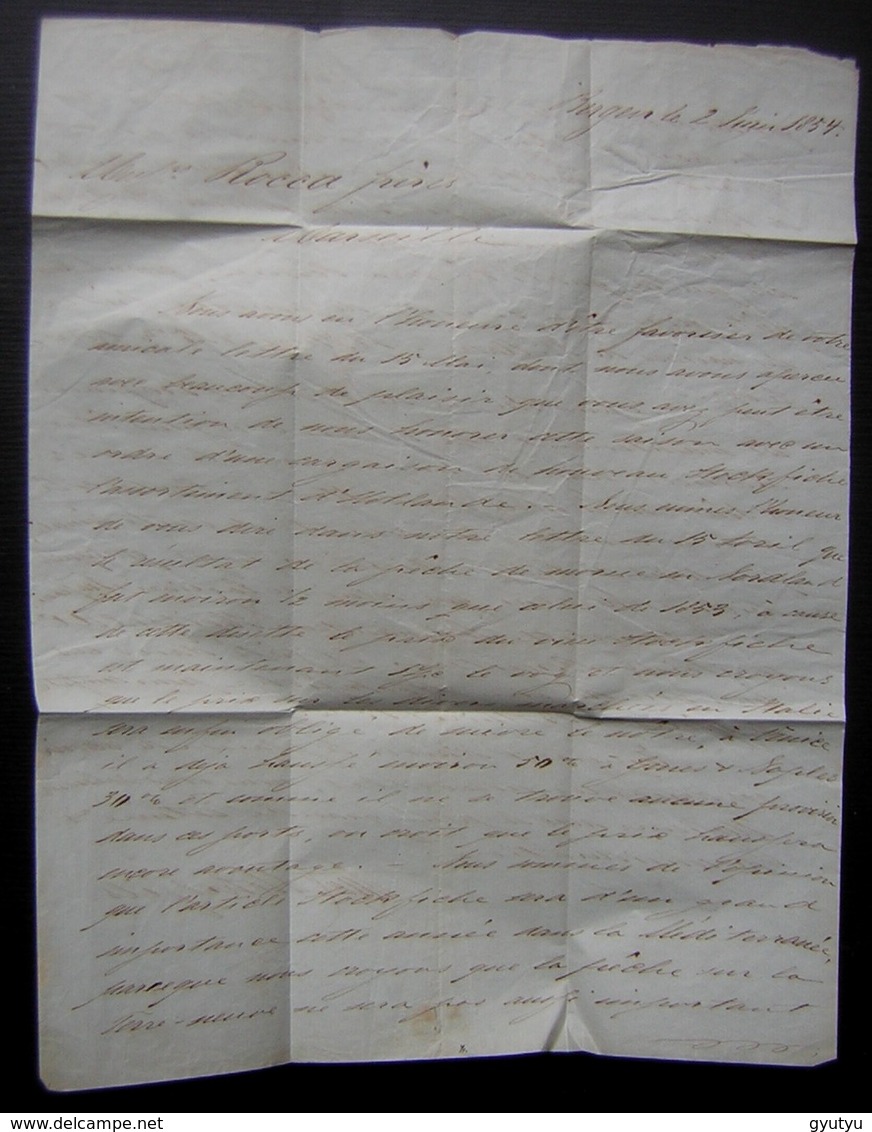 Bergen le 2 Juin 1854.
Mess.rs Rocca frères
Marseille
Nous avons eu l'honneur d'être favoriser de votre
amicale lettre du 15 Mai, dont nous avons aperçu
avec beaucoup de plaisir que vous avez peut être
intention de nous honorer cette saison avec un
ordre d'une cargaison de nouveau Stockfiche
l'assortiment d'Hollande. Nous eûmes l'honeur
de vous dire dans notre lettre du 15 Avril que
le résultat de la pêche de morue en Nordland
fut environ ½ moins que celui de 1853, à cause
de cette disette le prix du Stockfiche
est maintenant le vog et nous croyons
que le prix sur les divers marchées en Italie
sera enfin obligé de suivre le nôtre, à Vénise
il a déjà haussé environ 50% à Gênes & Naples
30% et comme il ne se trouve aucune provision
dans ces ports, on croit que le prix haussera
encore avantage. Nous sommes de l'opinion
que l'article Stockfiche sera d'un grand
importance cette année dans la Méditerranée,
parceque nous croyons que la pêche sur la
terre-neuve ne sera pas aussi important
gyutyu